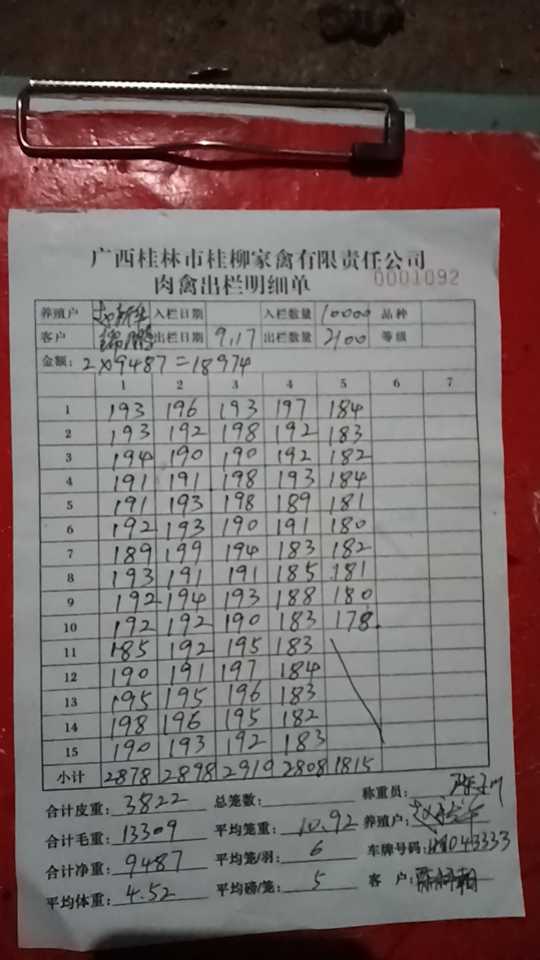 广西桂林市桂柳家禽有限责任公司
肉禽出栏明细单 0001092
养殖户 赵新华 入栏日期 入栏数量 10000 品种
客户 鹏 出栏日期 9.17 出栏数量 2100 等级
金额: 2×9487=18974
1 2 3 4 5 6 7
1 193 196 193 197 184
2 193 192 198 192 183
3 194 190 190 192 182
4 191 191 198 193 184
5 191 193 198 189 181
6 192 193 190 191 180
7 189 199 194 183 182
8 193 191 191 185 181
9 192 194 193 188 180
10 192 192 190 183 178
11 185 192 195 183
12 190 191 197 184
13 195 195 196 183
14 198 196 195 182
15 190 193 192 183
小计 2878 2898 2910 2808 1815
合计皮重: 3822 总笼数: 称重员:
合计毛重: 13309 平均笼重: 10.92 养殖户:
合计净重: 9487 平均笼/羽: 6 车牌号码: 043333
平均体重: 4.52 平均磅/笼: 5 客户: